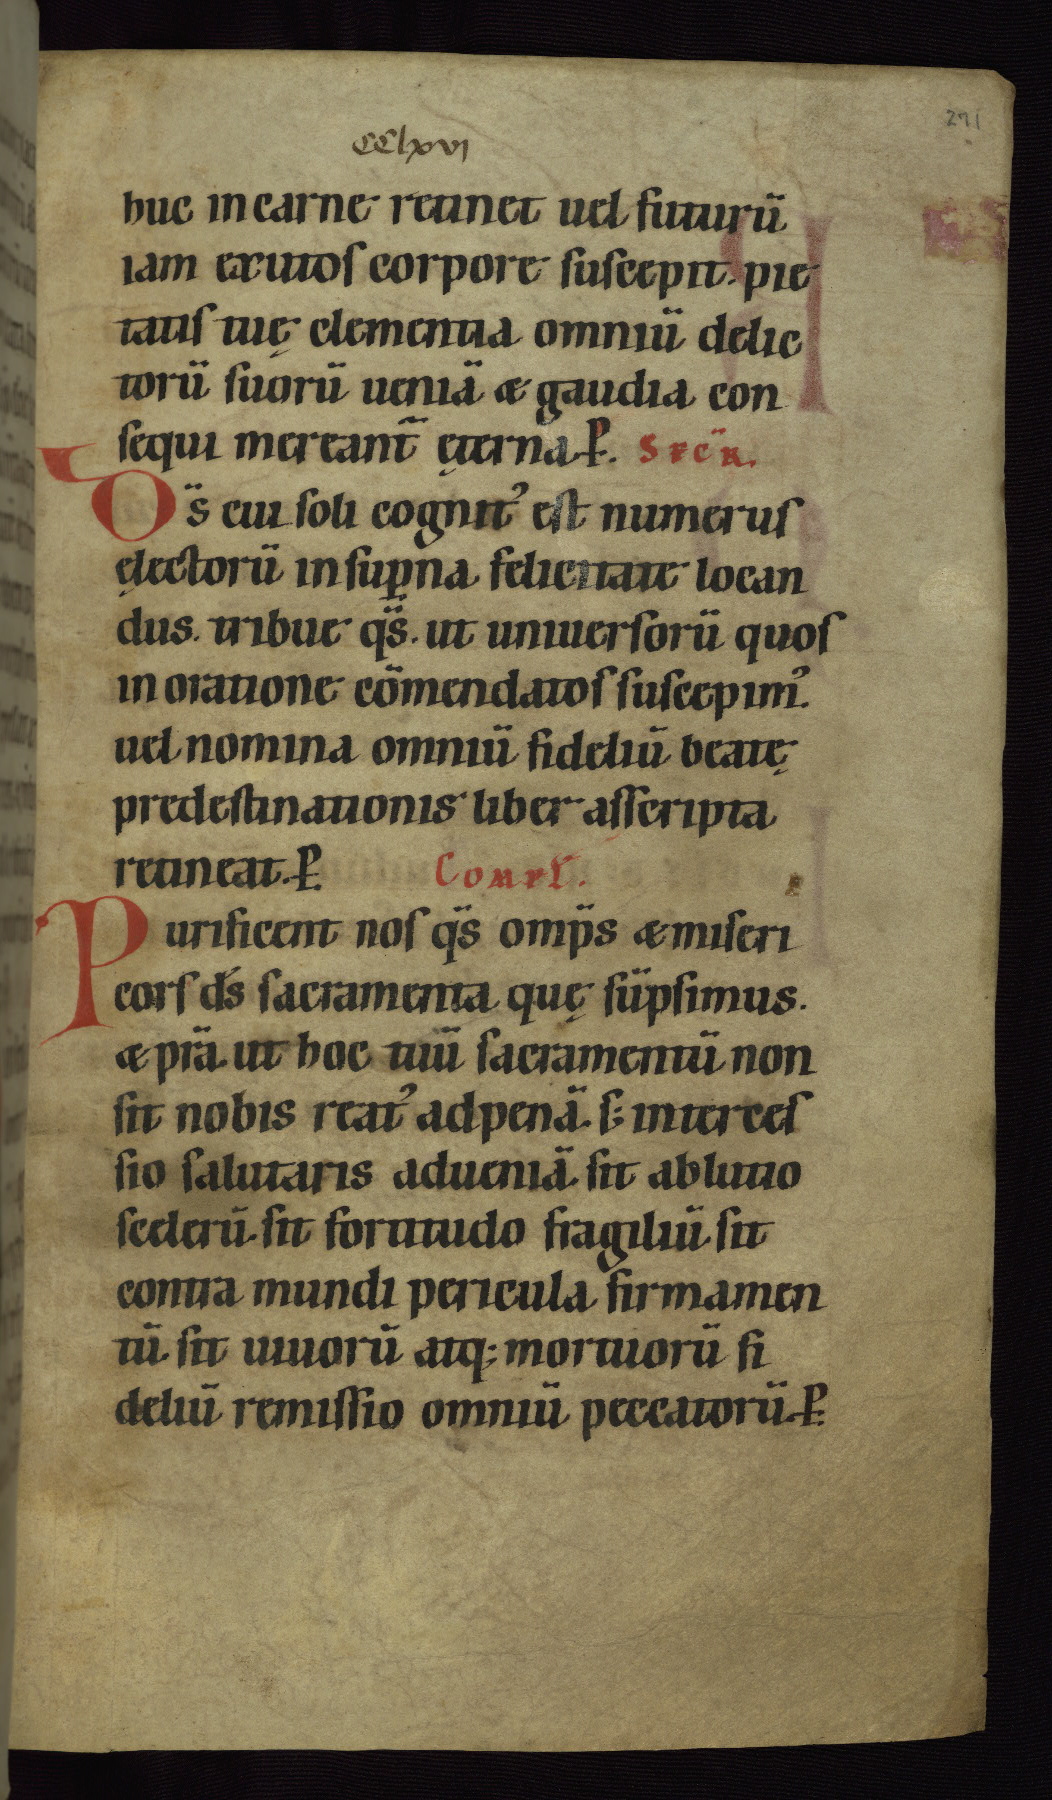 271
CClxvi
huc in carne retinet uel futurū
iam exutos corpore suscepit. pie
tatis tuę clementia omniū delic
torū suorū ueniā & gaudia con
sequi mereant̄ ęterna. P. SECR̄.
Ds̄ cui soli cognitꝰ est numerus
electorū in sup̱na felicitate locan
dus. tribue qs̄. ut uniuersorū quos
in oratione cōmendatos suscepimꝰ.
uel nomina omniū fideliū beatę
predestinationis liber asscripta
retineat. P. COMPL.
Purificent nos qs̄ omp̄s & miseri
cors ds̄ sacramenta quę sūpsimus.
& prā. ut hoc tuū sacramentū non
sit nobis reatꝰ ad penā. s; interces
sio salutaris ad ueniā. sit ablutio
scelerū. sit fortitudo fragiliū. sit
contra mundi pericula firmamen
tū. sit uiuorū atq; mortuorū fi
deliū remissio omniū peccatorū. P.